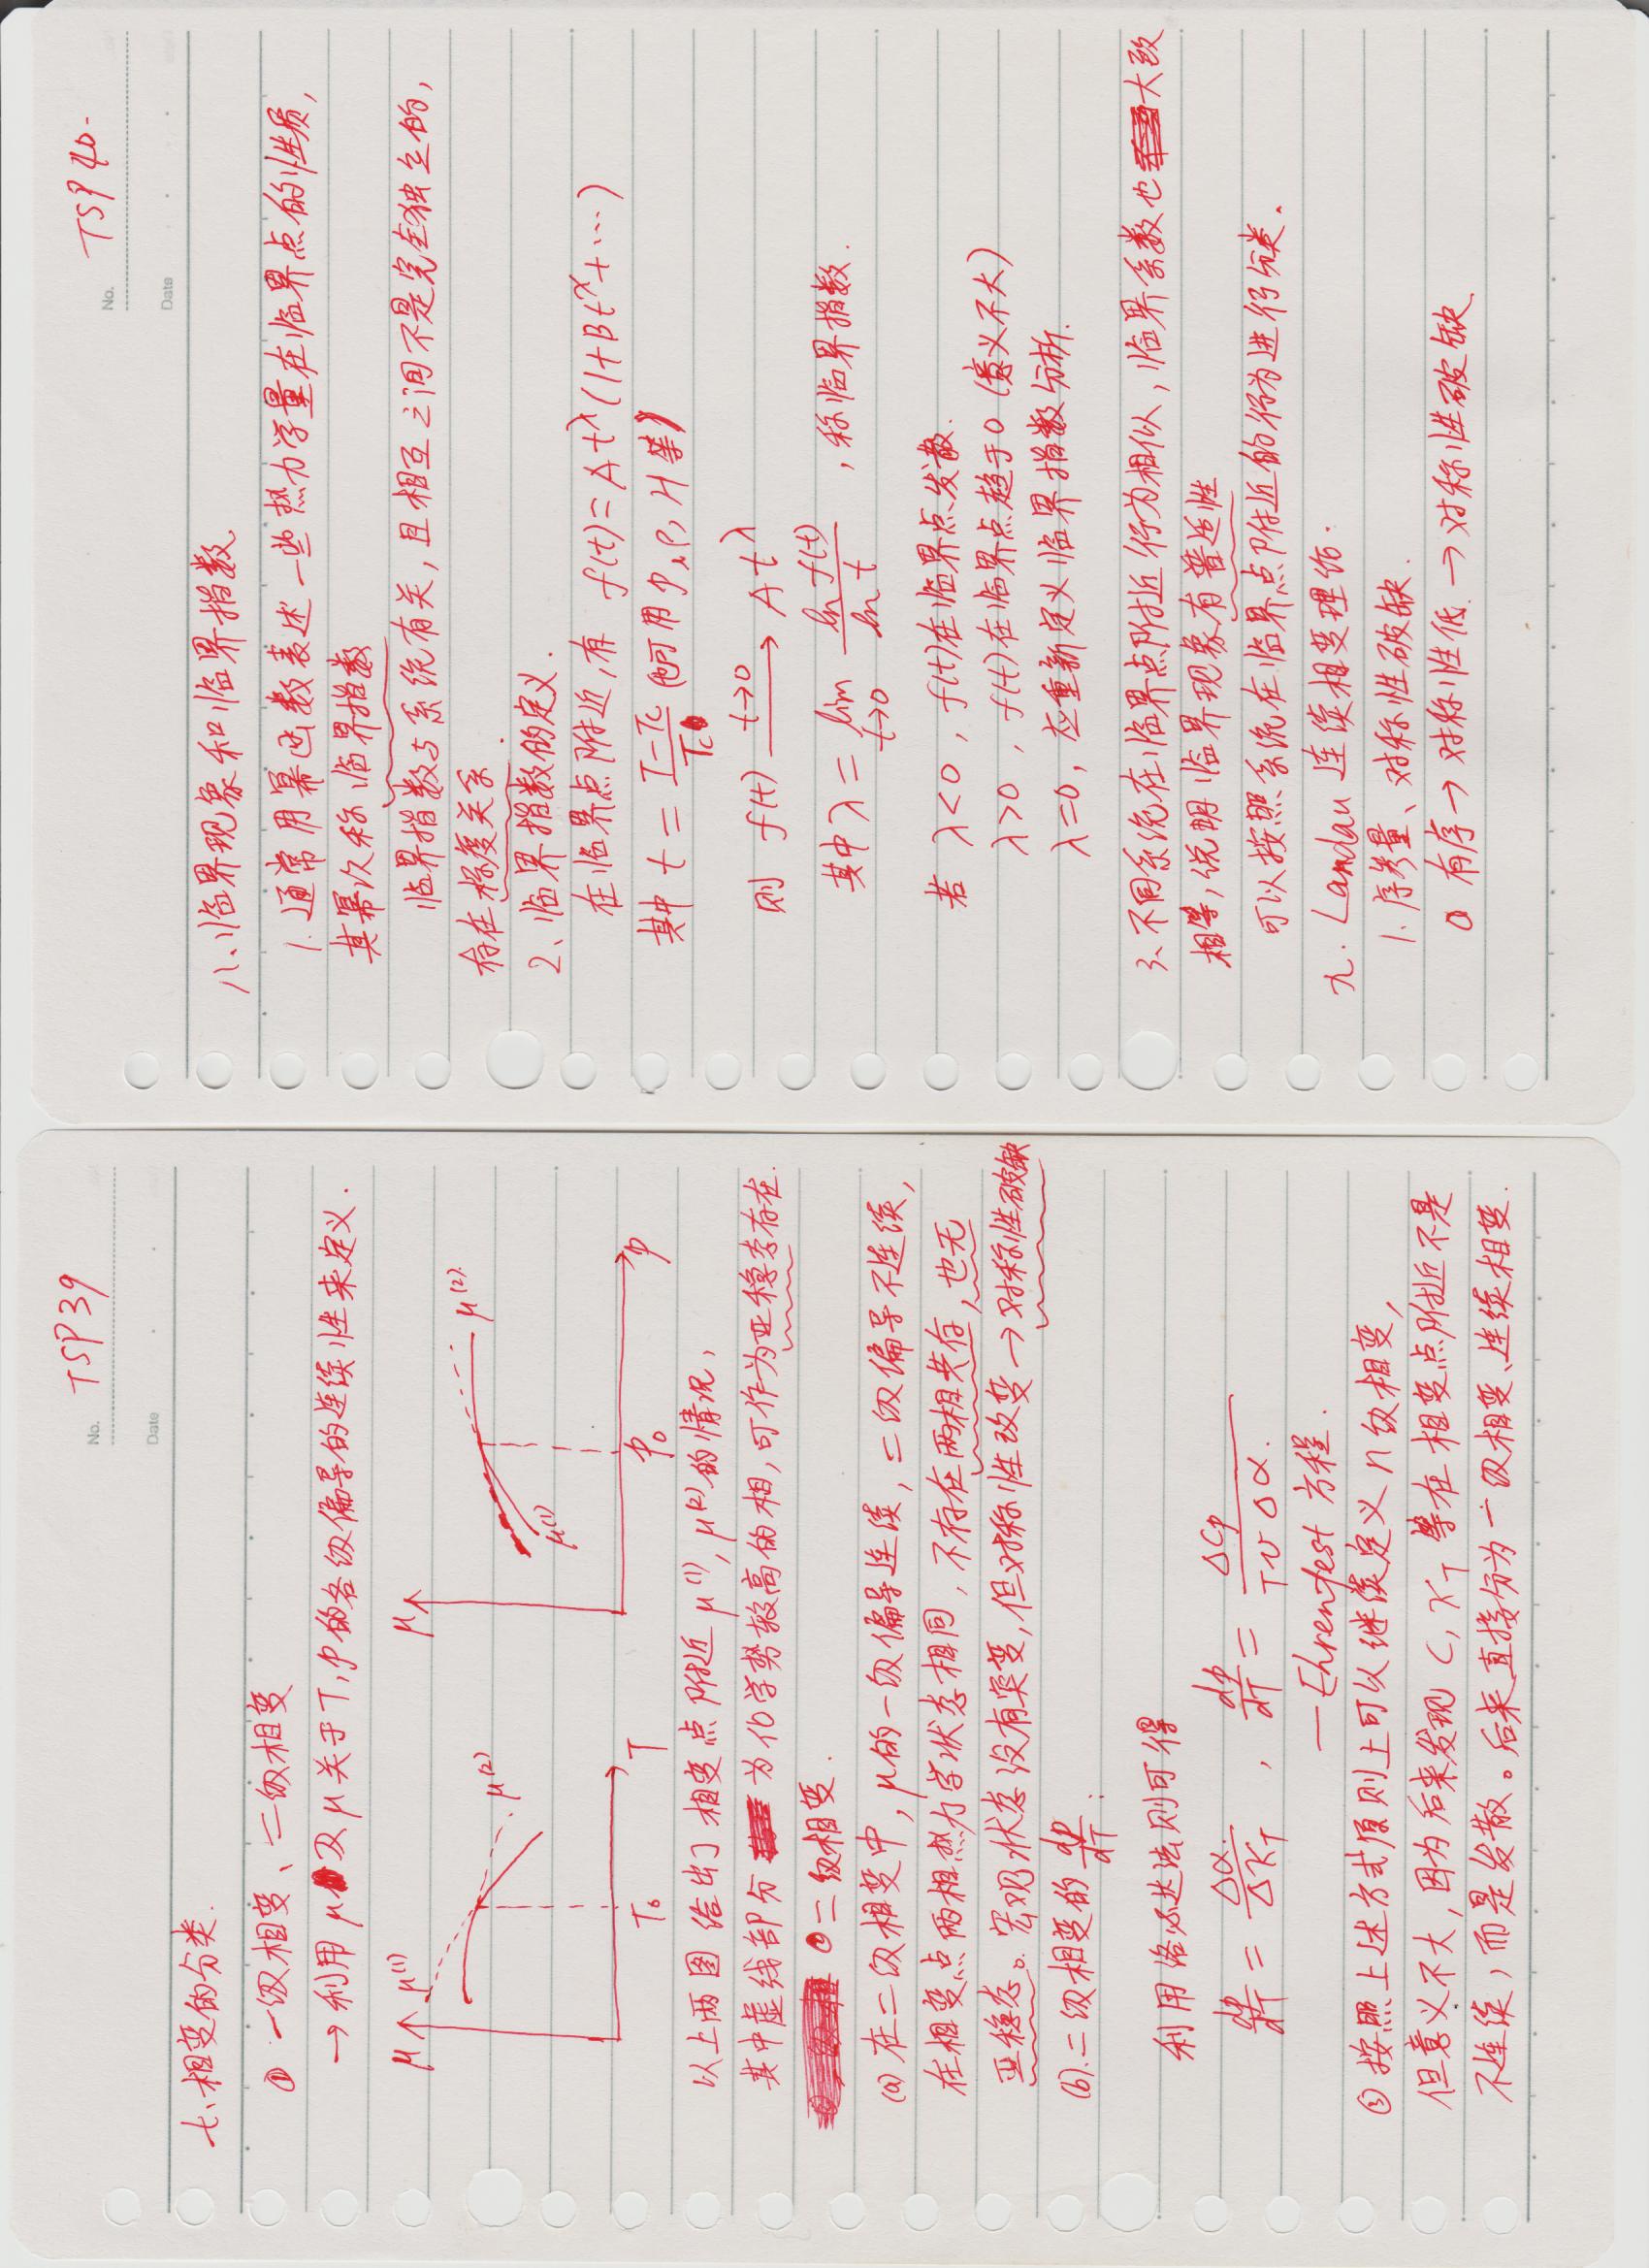 No. TSP39
Date
七、相变的分类.
① 一级相变、二级相变
→ 利用 μ 及 μ 关于 T, p 的各级偏导的连续性来定义.
μ μ⁽¹⁾ μ⁽²⁾ T₀ T
μ μ⁽¹⁾ μ⁽²⁾ p₀ p
以上两图给出了相变点附近 μ⁽¹⁾, μ⁽²⁾ 的情况,
其中虚线部分 为化学势较高的相, 可作为亚稳态存在.
② 二级相变.
(a) 在二级相变中, μ的一级偏导连续, 二级偏导不连续,
在相变点两相热力学状态相同, 不存在两相共存, 也无
亚稳态。宏观状态没有突变, 但对称性改变 → 对称性破缺
(b). 二级相变的 dp/dT :
利用洛必达法则可得
dp/dT = Δα/ΔκT , dp/dT = ΔCp/(TvΔα).
— Ehrenfest 方程.
③ 按照上述方式原则上可以继续定义 n 级相变,
但意义不大, 因为后来发现 C, κT 等在相变点附近不是
不连续, 而是发散。后来直接分为一级相变、连续相变.
No. TSP40.
Date
八、临界现象和临界指数
1. 通常用幂函数表述一些热力学量在临界点的性质,
其幂次称临界指数
临界指数与系统有关, 且相互之间不是完全独立的,
存在标度关系.
2、临界指数的定义.
在临界点附近, 有 f(t) = At^λ (1+Bt^x+…)
其中 t = (T−Tc)/Tc (也可用 p, ρ, H 等)
则 f(t) —t→0→ At^λ
其中 λ = lim t→0 ln f(t)/ln t , 称临界指数.
若 λ<0 , f(t)在临界点发散.
λ>0 , f(t)在临界点趋于0 (意义不大)
λ=0, 应重新定义临界指数分析.
3、不同系统在临界点附近行为相似, 临界系数也 大致
相等, 说明临界现象有普适性
可以按照系统在临界点附近的行为进行分类.
九. Landau 连续相变理论.
1. 序参量、对称性破缺.
① 有序 → 对称性低. → 对称性破缺